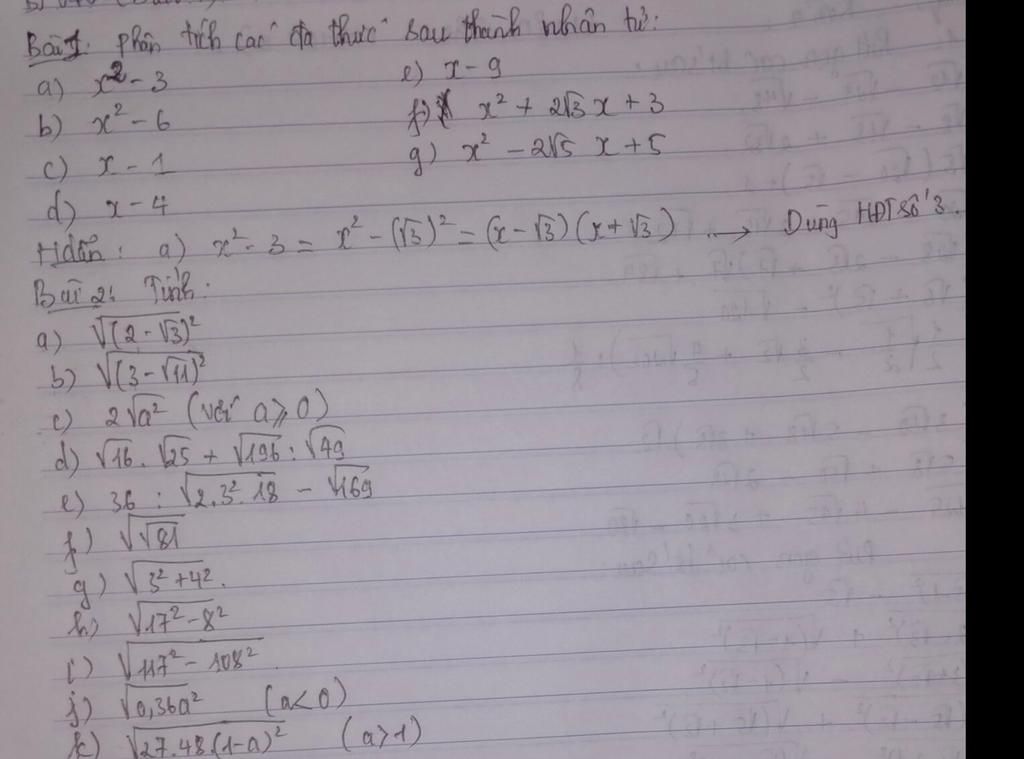 Bài 1: phân tích các đa thức sau thành nhân tử:
a) x² - 3
e) x - 9
b) x² - 6
f) x² + 2√3 x + 3
c) x - 1
g) x² - 2√5 x + 5
d) x - 4
Hdẫn: a) x² - 3 = x² - (√3)² = (x - √3)(x + √3) → Dùng HĐT số 3.
Bài 2: Tính:
a) √(2 - √3)²
b) √(3 - √11)²
c) 2√a² (với a ≥ 0)
d) √16 . √25 + √196 : √49
e) 36 : √2.3².18 - √169
f) √√81
g) √3² + 4² .
h) √17² - 8²
i) √117² - 108²
j) √0,36a² (a < 0)
k) √27.48(1-a)² (a > 1)